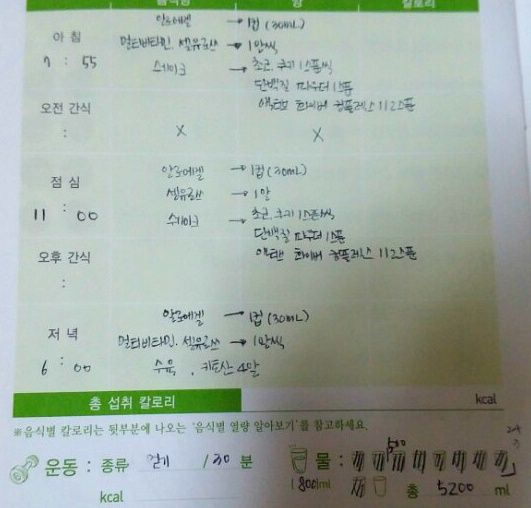 음식명 양 칼로리
아침 알로에겔 → 1컵 (30mL)
7 : 55 멀티비타민, 셀유로쓰 → 1알씩
쉐이크 → 초코, 쿠키 1스푼씩
단백질 파우더 1스푼
액티브 화이버 컴플렉스 1/2스푼
오전 간식
: X X
점심 알로에겔 → 1컵 (30mL)
셀유로쓰 → 1알
11 : 00 쉐이크 → 초코, 쿠키 1스푼씩
단백질 파우더 1스푼
오후 간식 액티브 화이버 컴플렉스 1/2스푼
:
알로에겔 → 1컵 (30mL)
저녁 멀티비타민, 셀유로쓰 → 1알씩
6 : 00 수육, 키토산 4알
총 섭취 칼로리 kcal
※음식별 칼로리는 뒷부분에 나오는 '음식별 열량 알아보기'를 참고하세요.
운동 : 종류 걷기 / 30 분 물 :
kcal 총 5200 ml